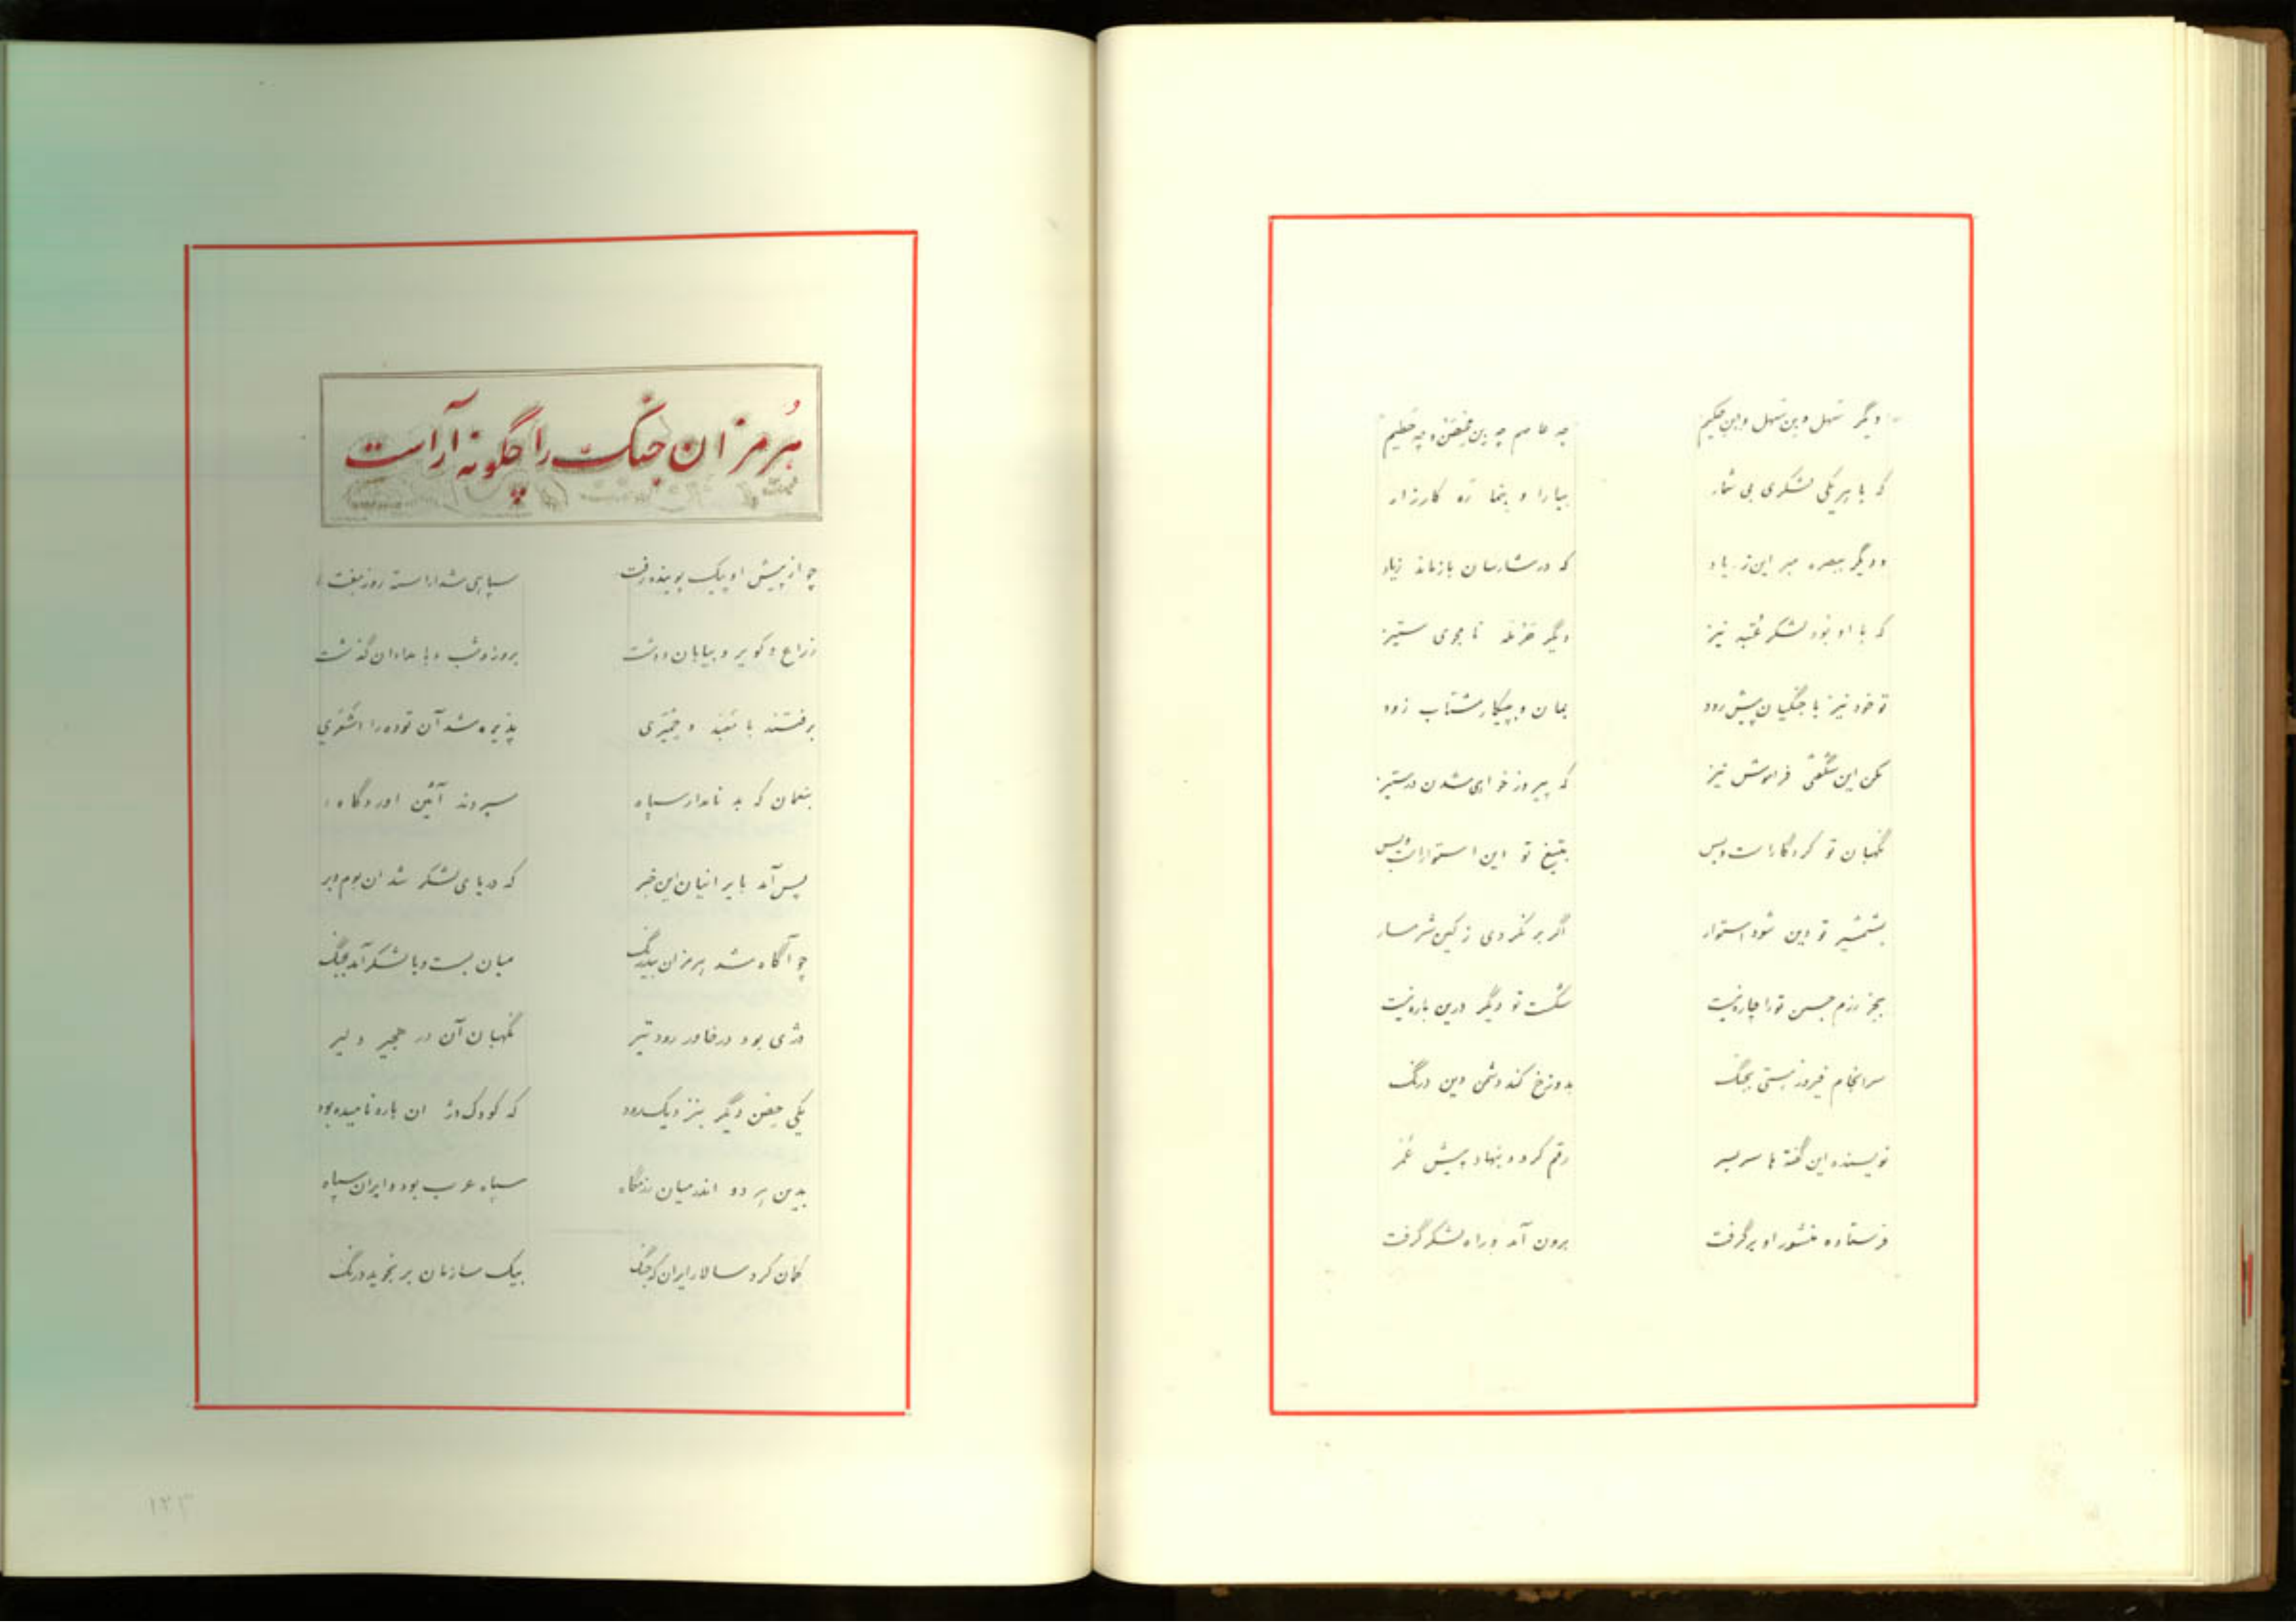 دیگر سهل و بن سهل و ابن حکیم چه عاصم چه بن و چه خطیم
که با هر یکی لشکری بی شمار بیارا و بنما ره کارزار
و دیگر ببصره بر این زیاد که در شارسان بازماند زیاد
که با او بود لشکر عتبه نیز دیگر حرمله نامجوی ستیز
تو خود نیز با جنگیان پیش رود بمان و بپیکار مشتاب زود
مکن این شگفتی فراموش نیز که پیروز خواهی شدن در ستیز
نگهبان تو کردگارست و بس بتیغ تو این استوارست و بس
بشمشیر تو دین شود استوار اگر برنگردی ز کین شرمسار
بجز رزم جستن تو را چاره نیست شکست تو دیگر درین باره نیست
سرانجام فیروز هستی بجنگ بدوزخ کند دشمن دین درنگ
نویسنده این گفته ها سر بسر رقم کرد و بنهاد پیش عمر
فرستاده منشور او برگرفت برون آمد و راه لشکر گرفت
هرمزان جنگ را چگونه آراست
چو از پیش او پیک پوینده رفت سپاهی شد آراسته روز هفت
ز راغ و کویر و بیابان و دشت بروز و شب و بامدادان گذشت
برفتند با و پذیره شد آن توده را اشعری
بنعمان که بد نامدار سپاه سپردند آئین اوردگاه
پس آمد بایرانیان این خبر که دریای لشکر شد ان بوم و بر
چو آگاه شد هرمزان بیدرنگ میان بست و با لشکر آمد بجنگ
دژی بود در خاور رود تیر نگهبان آن در هجیر دلیر
یکی حصن دیگر بنزدیک رود که کودک دژ ان باره نامیده بود
بدین هر دو اندر میان رزمگاه سپاه عرب بود و ایران سپاه
گمان کرد سالار ایران که جنگ بیک سازمان بر نجوید درنگ
۱۲۳